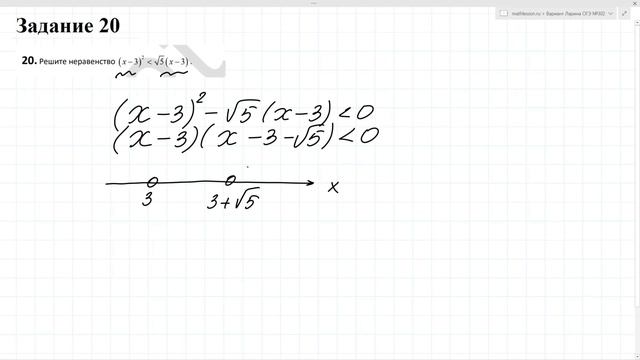 mathlesson.ru • Вариант Ларина ОГЭ №302
Задание 20
20. Решите неравенство (x−3)² < √5(x−3).
(x−3)² − √5(x−3) < 0
(x−3)(x−3−√5) < 0
3 3+√5 x